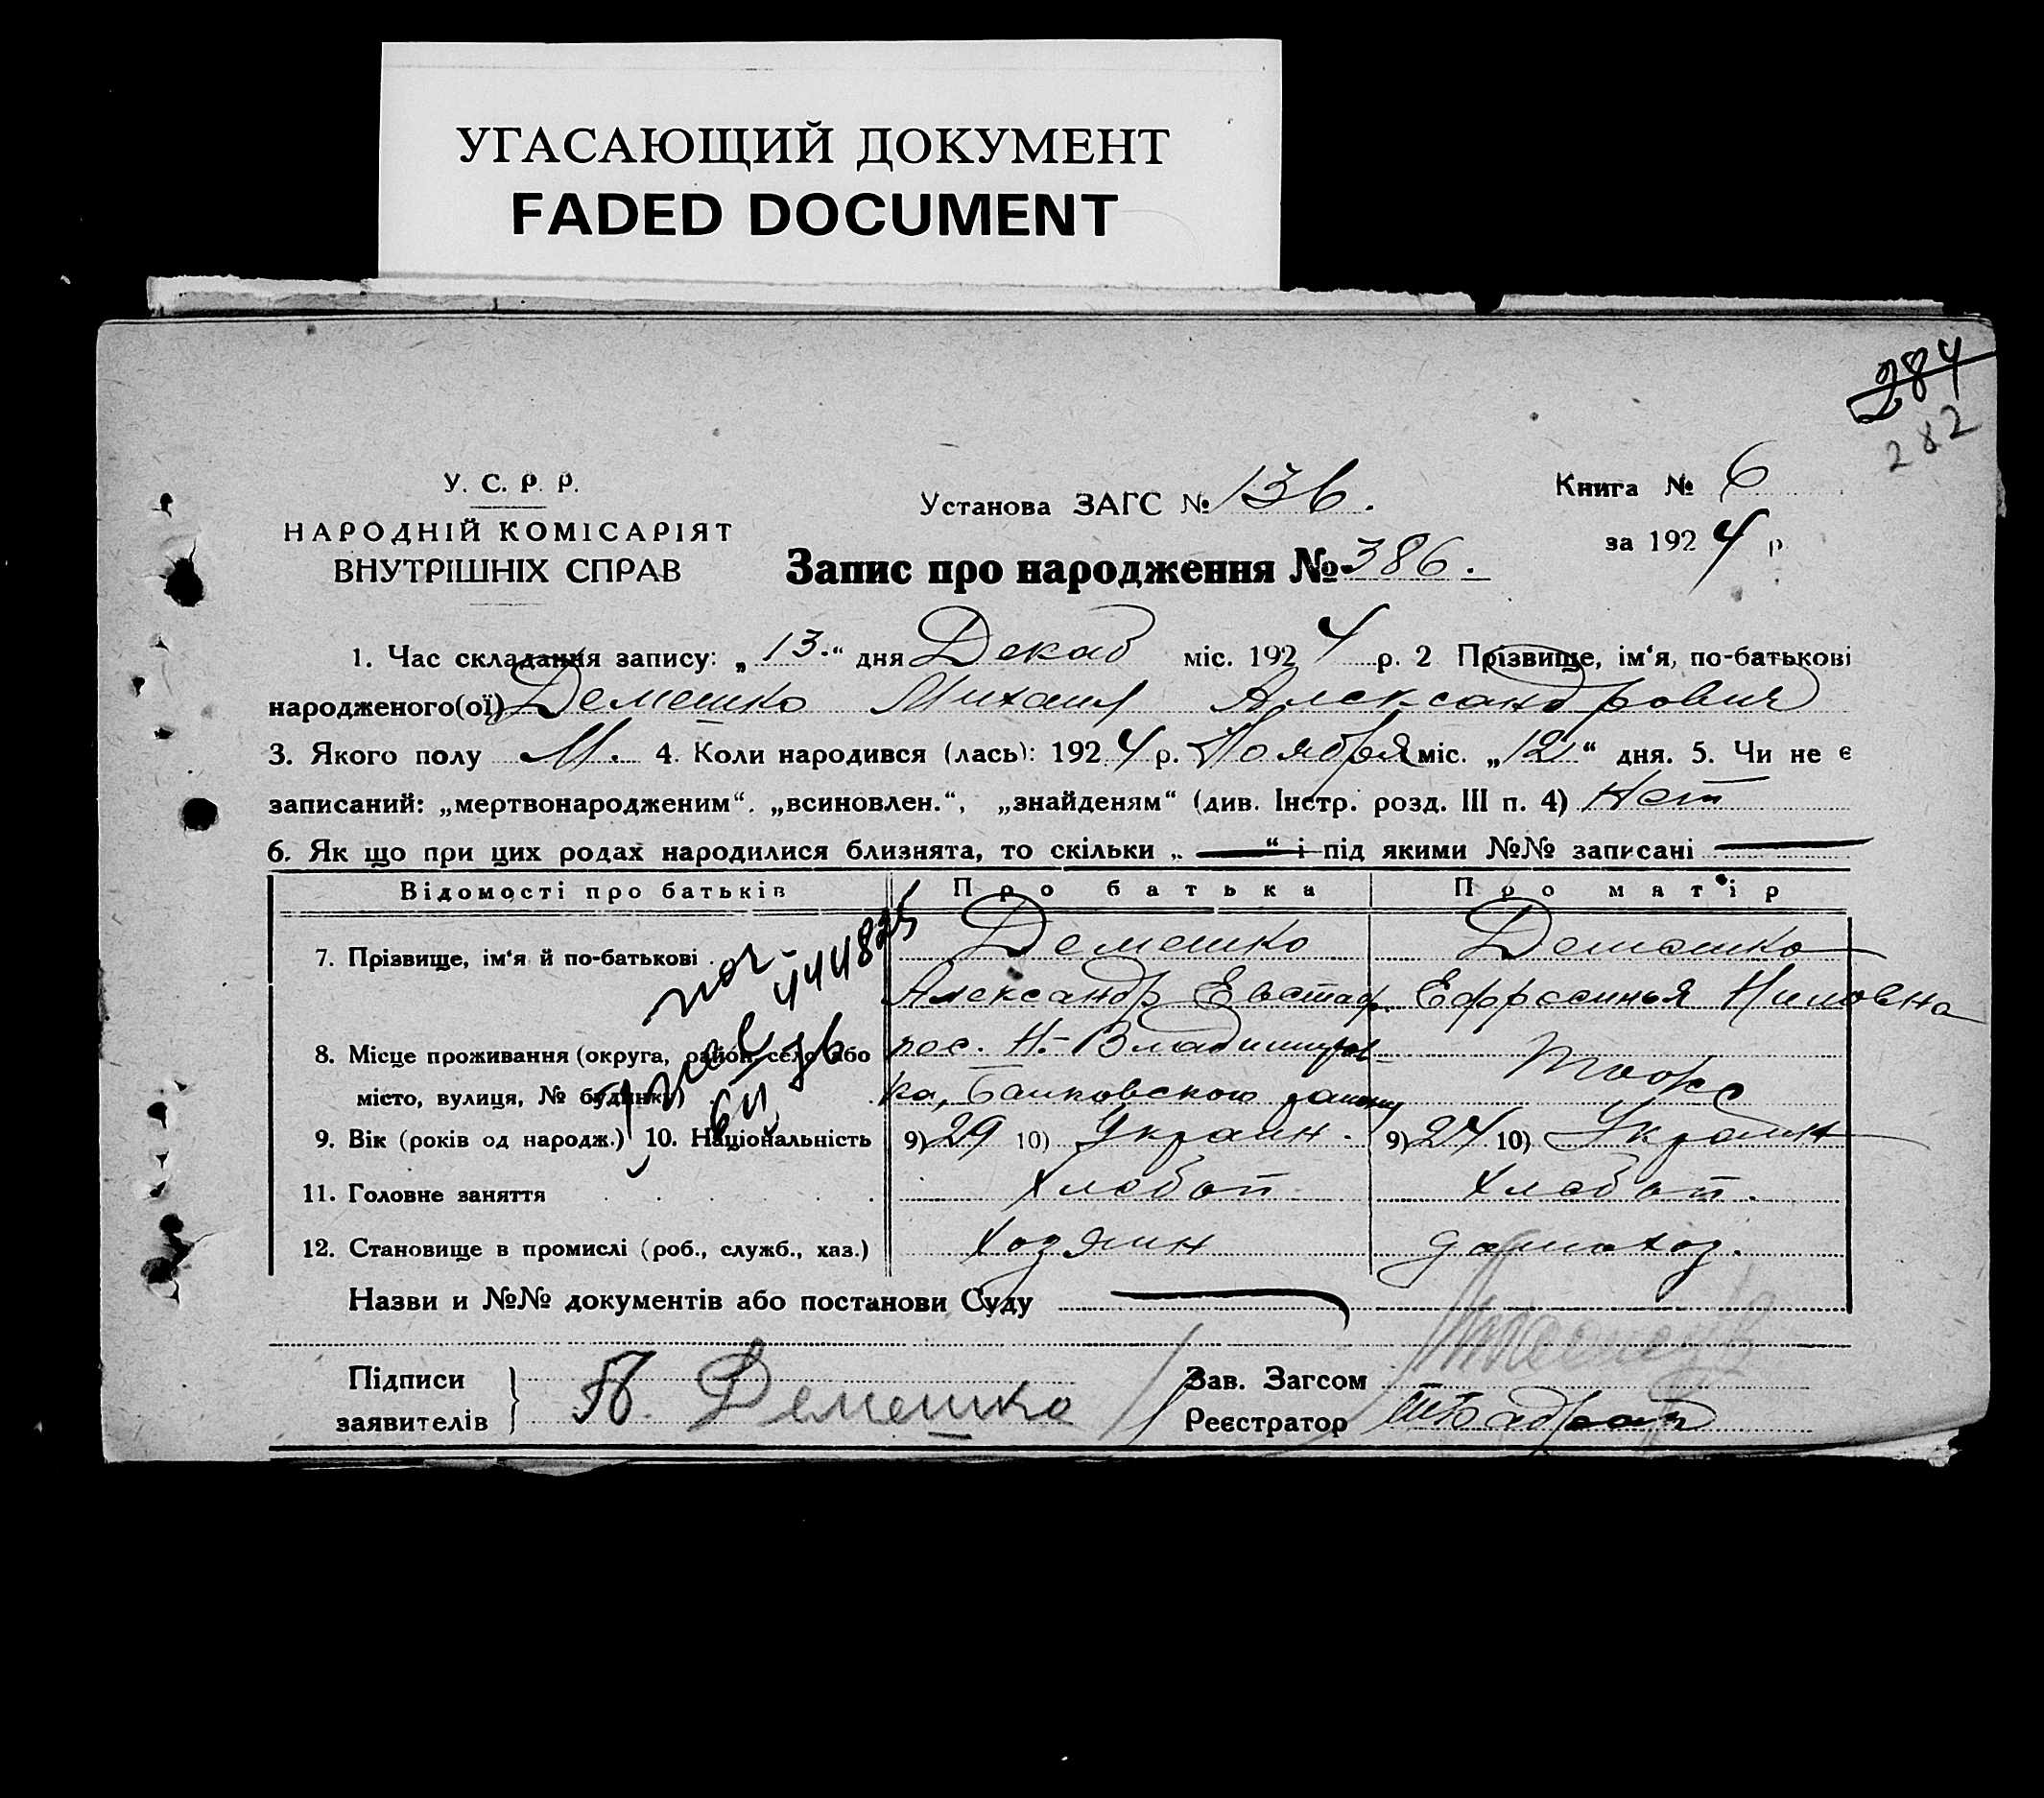 УГАСАЮЩИЙ ДОКУМЕНТ
FADED DOCUMENT
284
282
У. С. Р. Р.
НАРОДНІЙ КОМІСАРІЯТ
ВНУТРІШНІХ СПРАВ
Установа ЗАГС № 136.
Книга № 6
за 1924 р.
Запис про народження № 386.
1. Час складання запису: „13.“ дня Декаб міс. 1924 р. 2 Прізвище, ім‘я, по-батькові
народженого(ої) Демешко Михаил Александрович
3. Якого полу М. 4. Коли народився (лась): 1924 р. Ноября міс. „12“ дня. 5. Чи не є
записаний: „мертвонародженим“, „всиновлен.“, „знайденям“ (див. Інстр. розд. III п. 4) Нет
6. Як що при цих родах народилися близнята, то скільки „ — “ і під якими №№ записані —
Відомості про батьків Про батька Про мат‘ір
7. Прізвище, ім‘я й по-батькові . Демешко Демешко
Александр Евстаф. Ефросинья Ниловна
8. Місце проживання (округа, район, село або пос. Н.-Владимиров-
місто, вулиця, № будинк. ка, району тоже
9. Вік (років од народж.) 10. Національність 9) 29 10) Украин. 9) 24 10) Украин
11. Головне заняття Хлебоп. Хлебоп.
12. Становище в промислі (роб., служб., хаз.) Хозяин домохоз.
Назви и №№ документів або постанови Суду —
Підписи
заявителів } А. Демешко
Зав. Загсом
Реєстратор